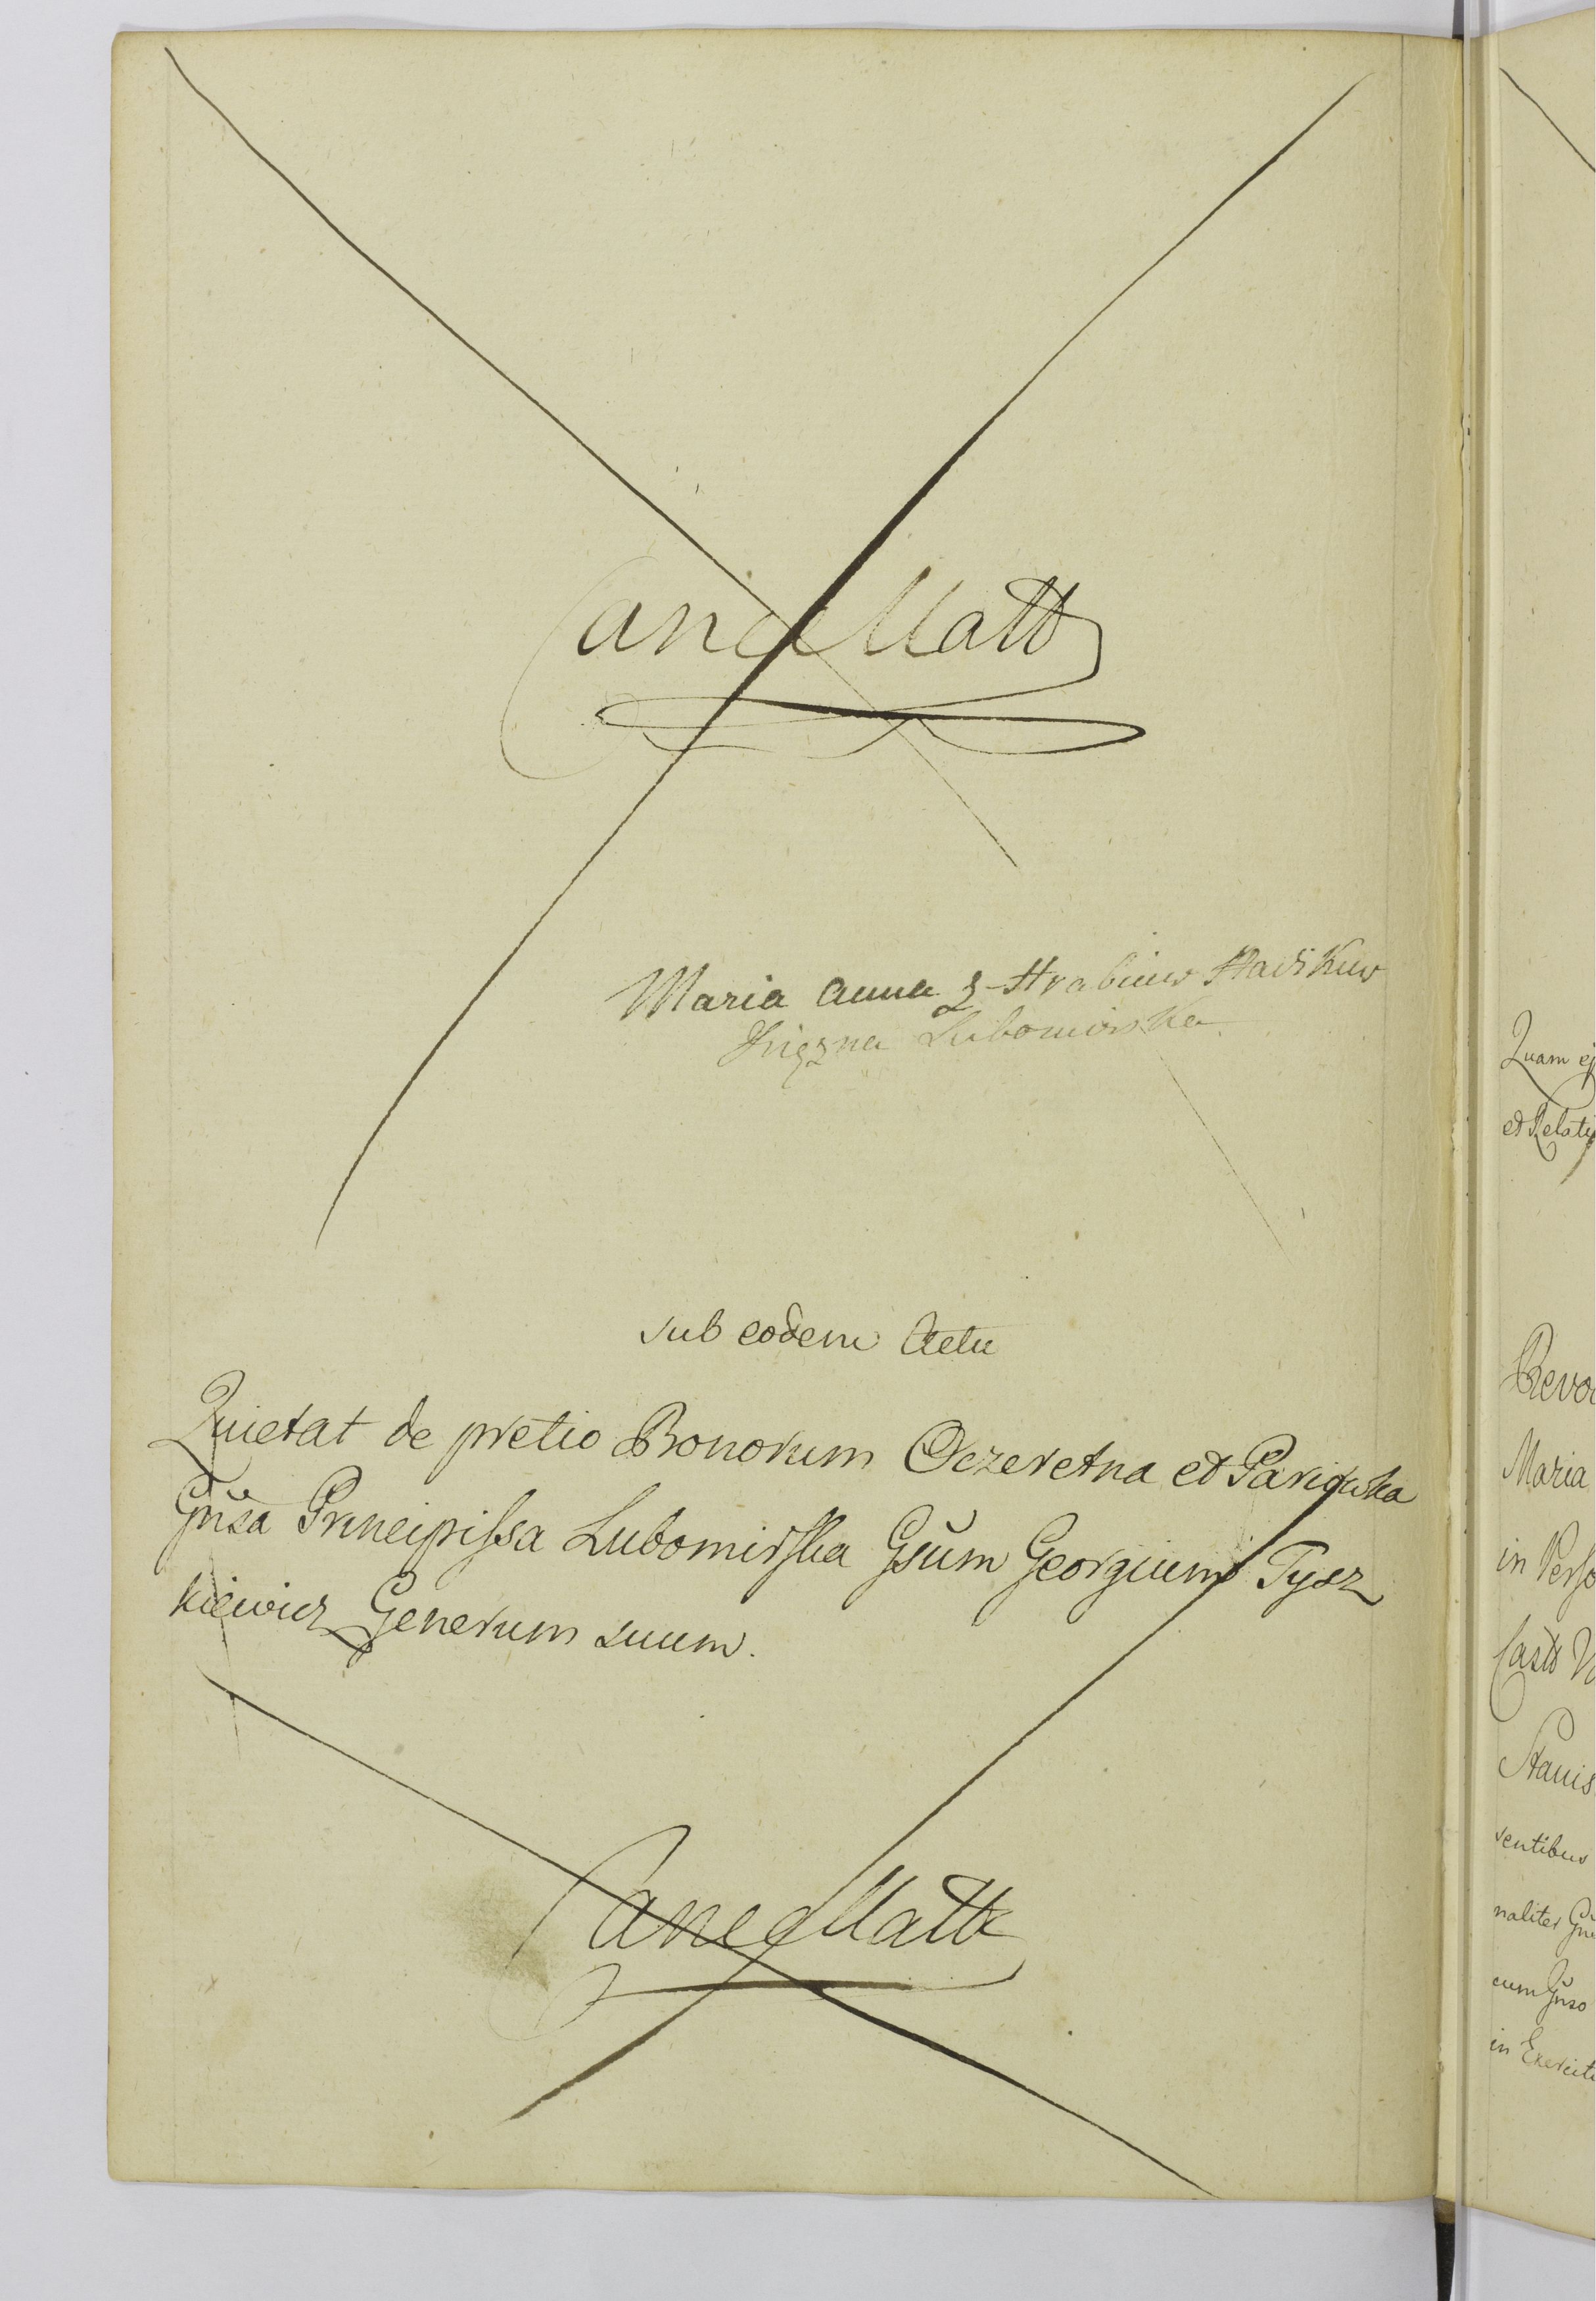 Canc Matt
Maria Anna z Hrabiuw Hadikuw
Xięzna Lubomirska
sub eodem Actu
Quietat de pretio Bonorum Oczeretna et Pariowka
Gnsa Principissa Lubomirska Gsum Georgium Tysz
kiewicz Generum suum.
Canc Matt
Quam ej
et Relati
Revoc
Maria
in Perso
Castr
Stanis
sentibus
naliter Gn
cum Gnso
in Exercitu